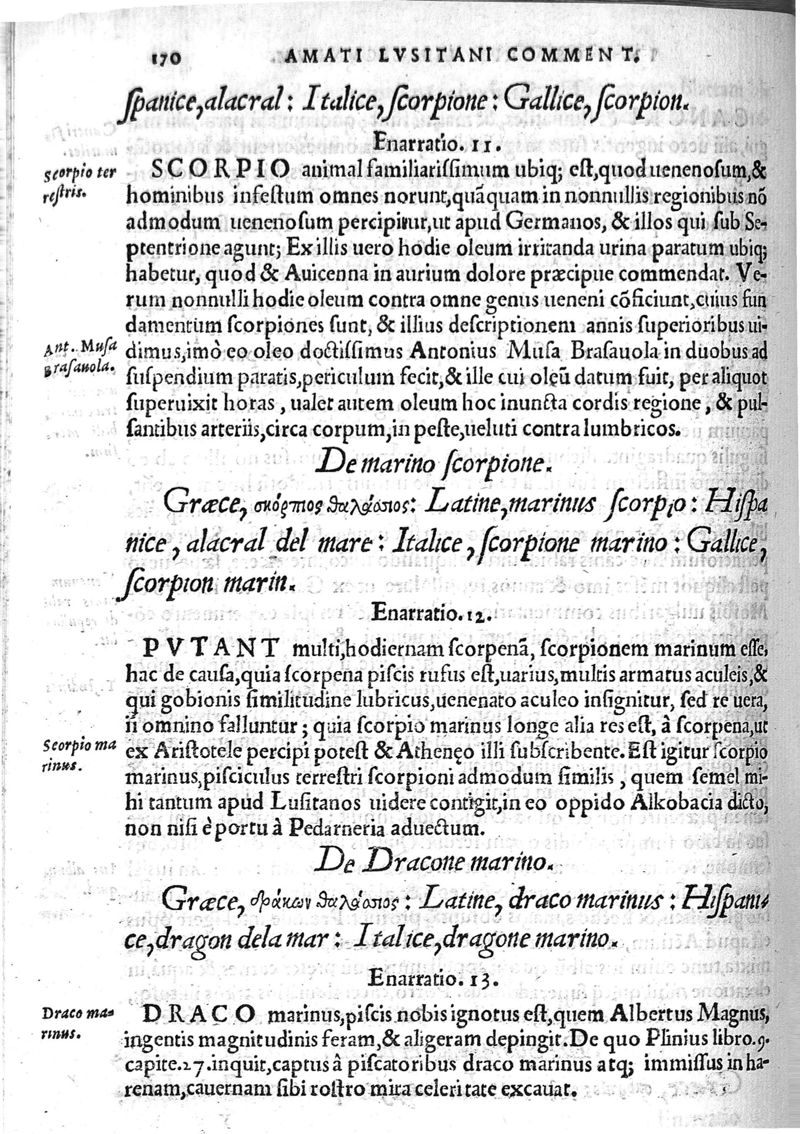 170 AMATI LVSITANI COMMENT.
ſpanice, alacral: Italice, ſcorpione: Gallice, ſcorpion.
Enarratio. 11.
Scorpio ter
reſtris.
SCORPIO animal familiariſſimum ubiq; eſt, quod uenenoſum, &
hominibus infeſtum omnes norunt, quãquam in nonnullis regionibus nõ
admodum uenenoſum percipitur, ut apud Germanos, & illos qui ſub Se-
ptentrione agunt; Ex illis uero hodie oleum irritanda urina paratum ubiq;
habetur, quod & Auicenna in aurium dolore præcipue commendat. Ve-
rum nonnulli hodie oleum contra omne genus ueneni cõficiunt, cuius fun
damentum ſcorpiones ſunt, & illius deſcriptionem annis ſuperioribus ui-
Ant. Muſa
Braſauola.
dimus, imò eo oleo doctiſſimus Antonius Muſa Braſauola in duobus ad
ſuſpendium paratis, periculum fecit, & ille cui oleũ datum fuit, per aliquot
ſuperuixit horas, ualet autem oleum hoc inuncta cordis regione, & pul-
ſantibus arteriis, circa corpum, in peſte, ueluti contra lumbricos.
De marino ſcorpione.
Græce, σκόρπιος θαλάσσιος: Latine, marinus ſcorpio: Hiſpa
nice, alacral del mare: Italice, ſcorpione marino: Gallice,
ſcorpion marin.
Enarratio. 12.
PVTANT multi, hodiernam ſcorpenã, ſcorpionem marinum eſſe,
hac de cauſa, quia ſcorpena piſcis rufus eſt, uarius, multis armatus aculeis, &
qui gobionis ſimilitudine lubricus, uenenato aculeo inſignitur, ſed re uera,
ii omnino falluntur; quia ſcorpio marinus longe alia res eſt, à ſcorpena, ut
Scorpio ma
rinus.
ex Ariſtotele percipi poteſt & Athenęo illi ſubſcribente. Eſt igitur ſcorpio
marinus, piſciculus terreſtri ſcorpioni admodum ſimilis, quem ſemel mi-
hi tantum apud Luſitanos uidere contigit, in eo oppido Alkobacia dicto,
non niſi è portu à Pedarneria aduectum.
De Dracone marino.
Græce, δράκων θαλάσσιος: Latine, draco marinus: Hiſpani
ce, dragon dela mar: Italice, dragone marino.
Enarratio. 13.
Draco ma-
rinus.
DRACO marinus, piſcis nobis ignotus eſt, quem Albertus Magnus,
ingentis magnitudinis feram, & aligeram depingit. De quo Plinius libro. 9.
capite. 27. inquit, captus à piſcatoribus draco marinus atq; immiſſus in ha-
renam, cauernam ſibi roſtro mira celeritate excauat.